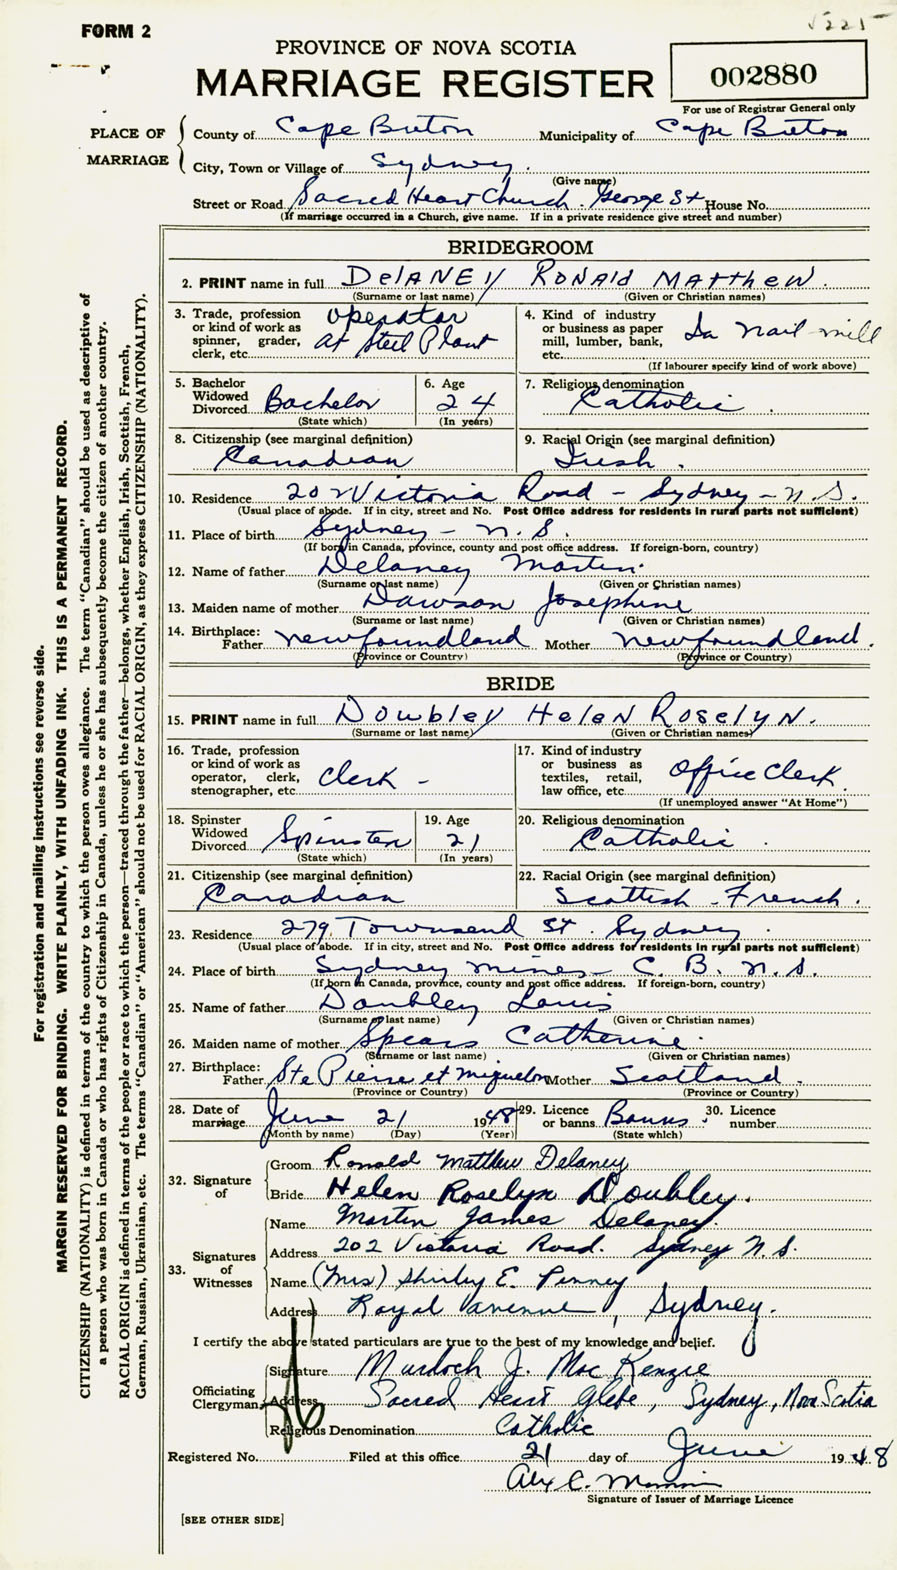 √225
FORM 2
PROVINCE OF NOVA SCOTIA
MARRIAGE REGISTER
002880
For use of Registrar General only
PLACE OF MARRIAGE
County of Cape Breton Municipality of Cape Breton
City, Town or Village of Sydney.
(Give name)
Street or Road Sacred Heart Church. George St House No.
(If marriage occurred in a Church, give name. If in a private residence give street and number)
BRIDEGROOM
2. PRINT name in full DelANEY RONAld MATTheW.
(Surname or last name) (Given or Christian names)
3. Trade, profession or kind of work as spinner, grader, clerk, etc. operator at Steel Plant
4. Kind of industry or business as paper mill, lumber, bank, etc. In nail-mill
(If labourer specify kind of work above)
5. Bachelor Widowed Divorced Bachelor
(State which)
6. Age 24
(In years)
7. Religious denomination Catholic.
8. Citizenship (see marginal definition) Canadian
9. Racial Origin (see marginal definition) Irish.
10. Residence 202 Victoria Road - Sydney - N.S.
(Usual place of abode. If in city, street and No. Post Office address for residents in rural parts not sufficient)
11. Place of birth Sydney - N.S.
(If born in Canada, province, county and post office address. If foreign-born, country)
12. Name of father Delaney Martin.
(Surname or last name) (Given or Christian names)
13. Maiden name of mother Dawson Josephine
(Surname or last name) (Given or Christian names)
14. Birthplace: Father Newfoundland Mother Newfoundland.
(Province or Country) (Province or Country)
BRIDE
15. PRINT name in full Doubley Helen Roselyn.
(Surname or last name) (Given or Christian names)
16. Trade, profession or kind of work as operator, clerk, stenographer, etc. Clerk -
17. Kind of industry or business as textiles, retail, law office, etc. Office Clerk
(If unemployed answer "At Home")
18. Spinster Widowed Divorced Spinster
(State which)
19. Age 21
(In years)
20. Religious denomination Catholic.
21. Citizenship (see marginal definition) Canadian
22. Racial Origin (see marginal definition) Scottish-French.
23. Residence 279 Townsend St. Sydney.
(Usual place of abode. If in city, street and No. Post Office address for residents in rural parts not sufficient)
24. Place of birth Sydney Mines - C. B. N. S.
(If born in Canada, province, county and post office address. If foreign-born, country)
25. Name of father Doubley Louis
(Surname or last name) (Given or Christian names)
26. Maiden name of mother Spears Catherine.
(Surname or last name) (Given or Christian names)
27. Birthplace: Father Ste Pierre et Miquelon Mother Scotland.
(Province or Country) (Province or Country)
28. Date of marriage June 21 1948
(Month by name) (Day) (Year)
29. Licence or banns Banns.
(State which)
30. Licence number
32. Signature of
Groom Ronald Matthew Delaney
Bride Helen Roselyn Doubley.
33. Signatures of Witnesses
Name Martin James Delaney.
Address 202 Victoria Road. Sydney N.S.
Name (Mrs) Shirley E. Penney
Address Royal Avenue, Sydney.
I certify the above stated particulars are true to the best of my knowledge and belief.
Officiating Clergyman
Signature Murdoch J. MacKenzie
Address Sacred Heart Glebe, Sydney, Nova Scotia
Religious Denomination Catholic
Registered No. Filed at this office 21 day of June 1948
Alex C.
Signature of Issuer of Marriage Licence
[SEE OTHER SIDE]
For registration and mailing instructions see reverse side.
MARGIN RESERVED FOR BINDING. WRITE PLAINLY, WITH UNFADING INK. THIS IS A PERMANENT RECORD.
CITIZENSHIP (NATIONALITY) is defined in terms of the country to which the person owes allegiance. The term "Canadian" should be used as descriptive of
a person who was born in Canada or who has rights of Citizenship in Canada, unless he or she has subsequently become the citizen of another country.
RACIAL ORIGIN is defined in terms of the people or race to which the person—traced through the father—belongs, whether English, Irish, Scottish, French,
German, Russian, Ukrainian, etc. The terms "Canadian" or "American" should not be used for RACIAL ORIGIN, as they express CITIZENSHIP (NATIONALITY).